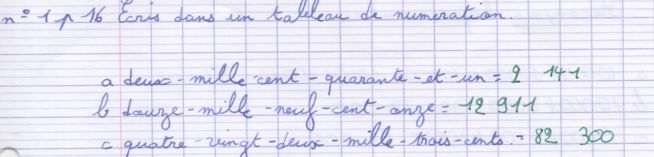 n° 1 p 16 Ecris dans un tableau de numération.
a deux-mille-cent-quarante-et-un = 2 141
b douze-mille-neuf-cent-onze = 12 911
c quatre-vingt-deux-mille-trois-cents. = 82 300